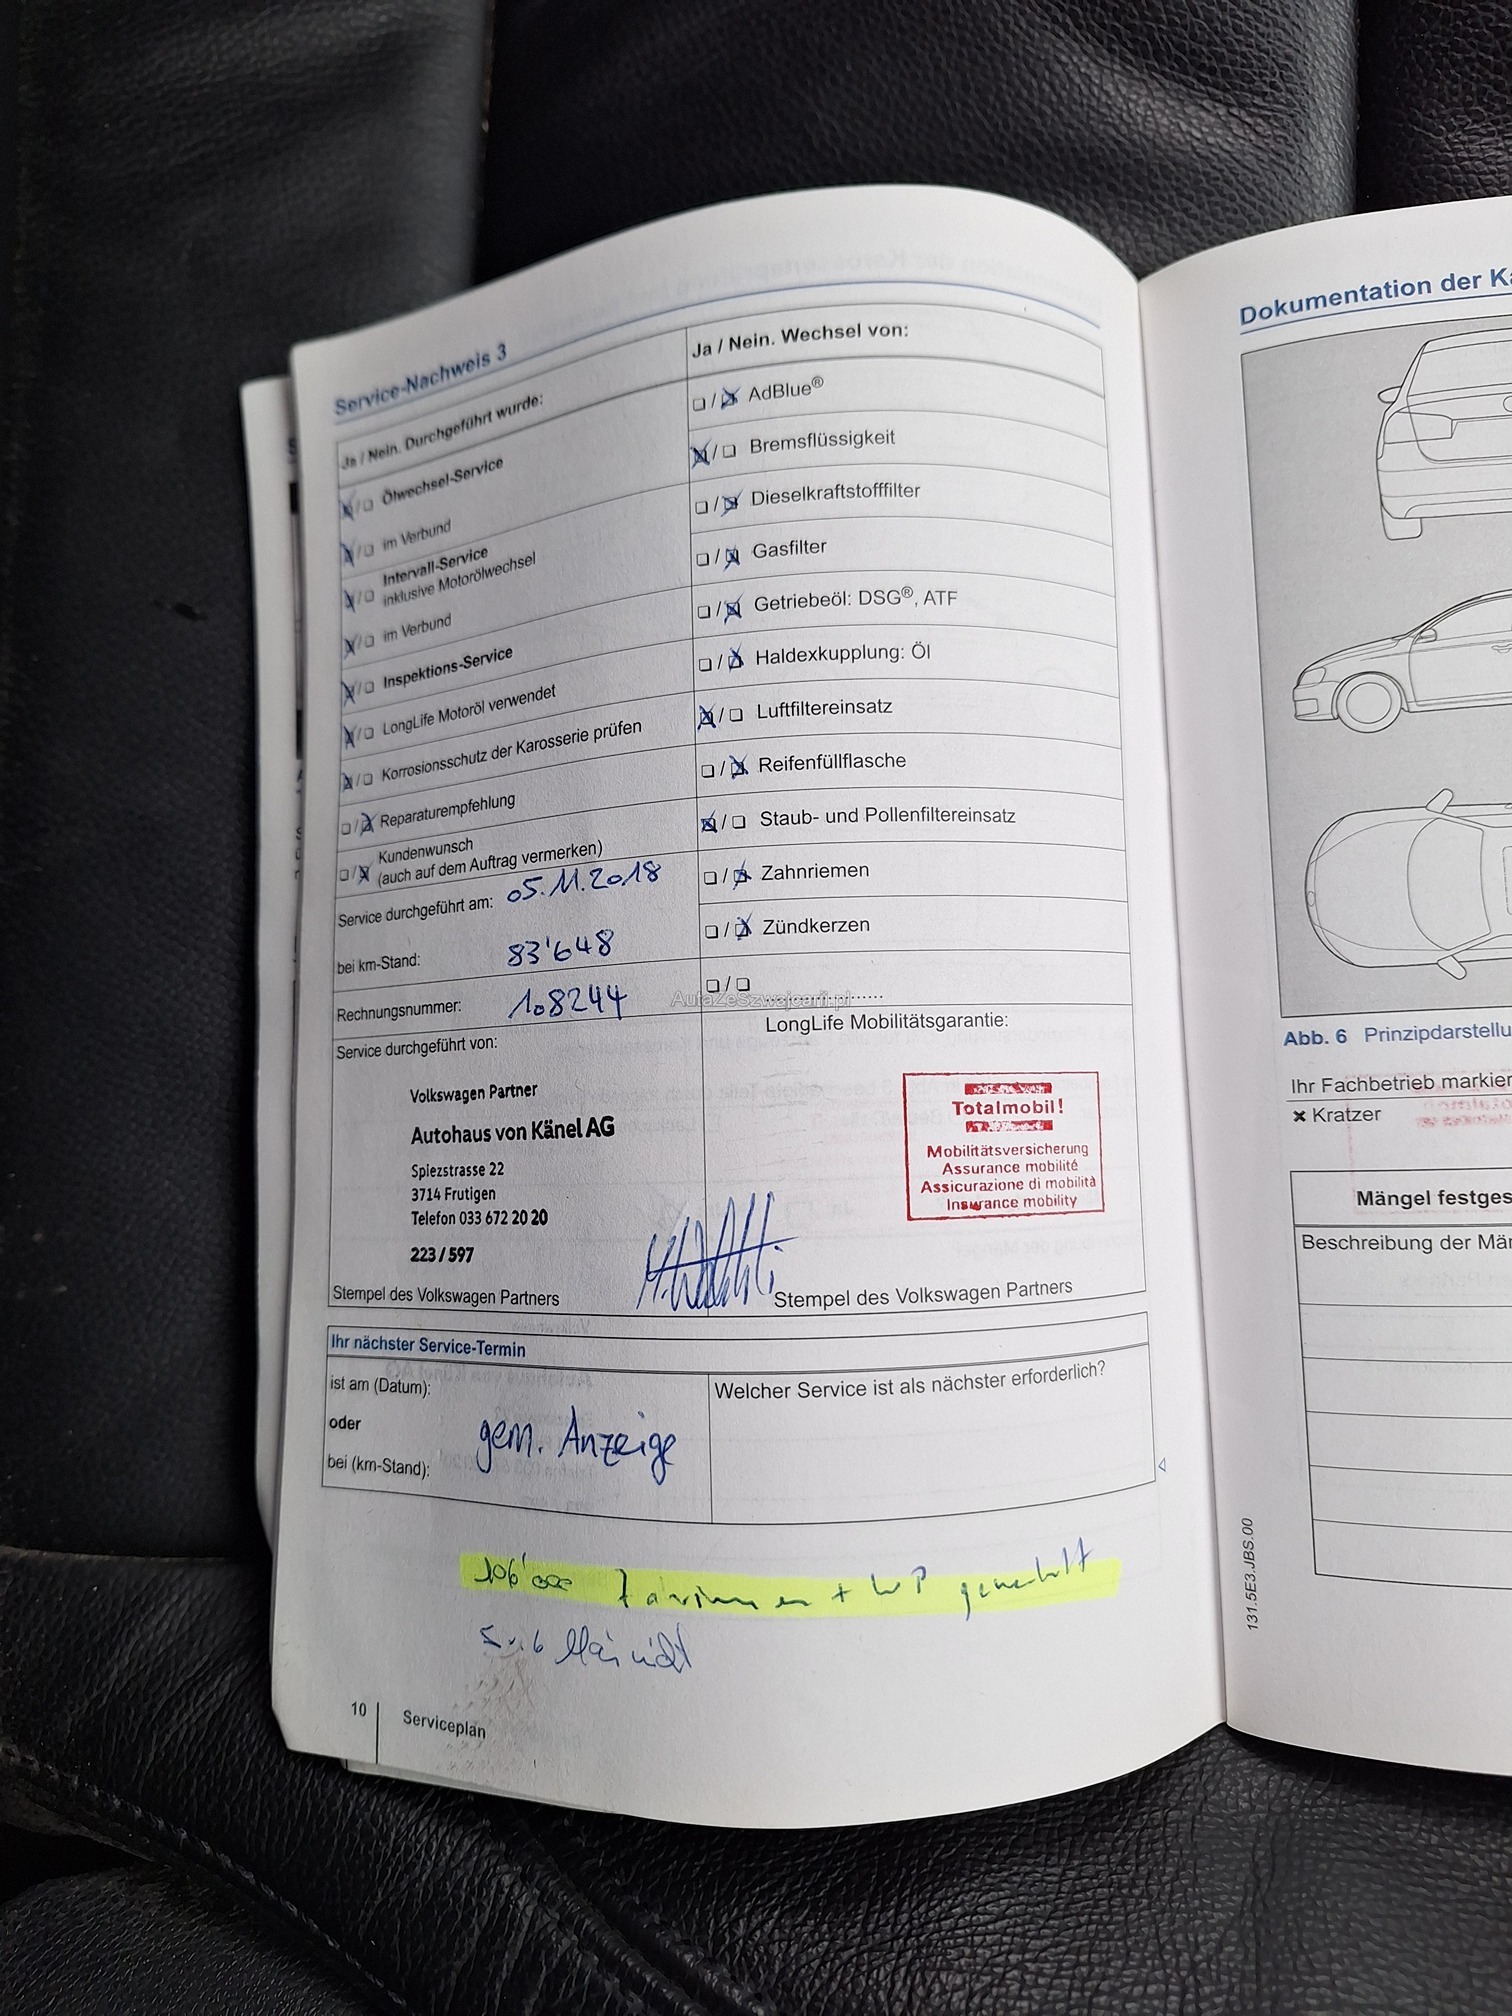 Service-Nachweis 3
Ja / Nein. Durchgeführt wurde:
☒/☐ Ölwechsel-Service
☒/☐ im Verbund
☒/☐ Intervall-Service
inklusive Motorölwechsel
☒/☐ im Verbund
☒/☐ Inspektions-Service
☒/☐ LongLife Motoröl verwendet
☒/☐ Korrosionsschutz der Karosserie prüfen
☐/☒ Reparaturempfehlung
☐/☒ Kundenwunsch
(auch auf dem Auftrag vermerken)
Service durchgeführt am: 05.11.2018
bei km-Stand: 83'648
Rechnungsnummer: 108244
Ja / Nein. Wechsel von:
☐/☒ AdBlue®
☒/☐ Bremsflüssigkeit
☐/☒ Dieselkraftstofffilter
☐/☒ Gasfilter
☐/☒ Getriebeöl: DSG®, ATF
☐/☒ Haldexkupplung: Öl
☒/☐ Luftfiltereinsatz
☐/☒ Reifenfüllflasche
☒/☐ Staub- und Pollenfiltereinsatz
☐/☒ Zahnriemen
☐/☒ Zündkerzen
☐/☐ ..................
AutaZeSzwajcarii.pl
Service durchgeführt von:
Volkswagen Partner
Autohaus von Känel AG
Spiezstrasse 22
3714 Frutigen
Telefon 033 672 20 20
223 / 597
Stempel des Volkswagen Partners
LongLife Mobilitätsgarantie:
Totalmobil!
Mobilitätsversicherung
Assurance mobilité
Assicurazione di mobilità
Insurance mobility
Stempel des Volkswagen Partners
Ihr nächster Service-Termin
ist am (Datum):
oder
bei (km-Stand):
gem. Anzeige
Welcher Service ist als nächster erforderlich?
106'000 + WP
10
Serviceplan
Dokumentation der Ka
Abb. 6 Prinzipdarstellu
Ihr Fachbetrieb markier
✖ Kratzer
Mängel festges
Beschreibung der Män
131.5E3.JBS.00